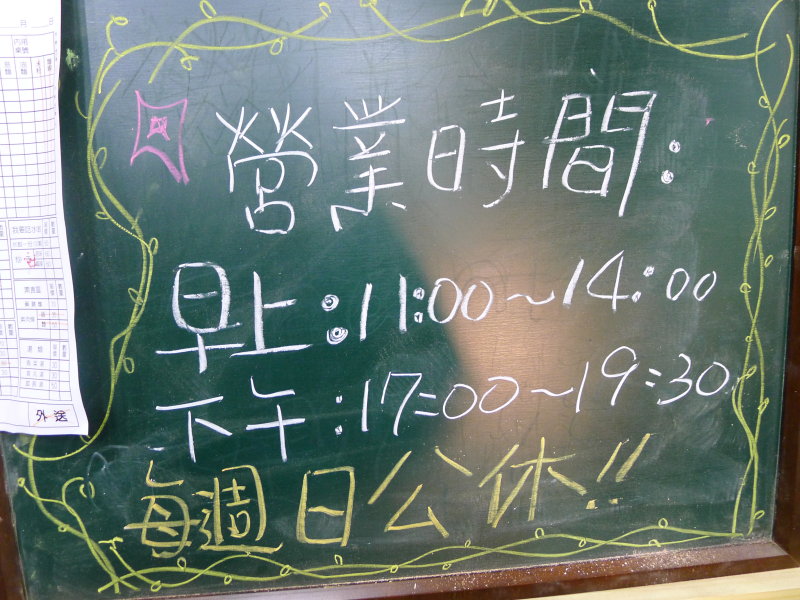 營業時間:
早上:11:00~14:00
下午:17:00~19:30
每週日公休!!
外送